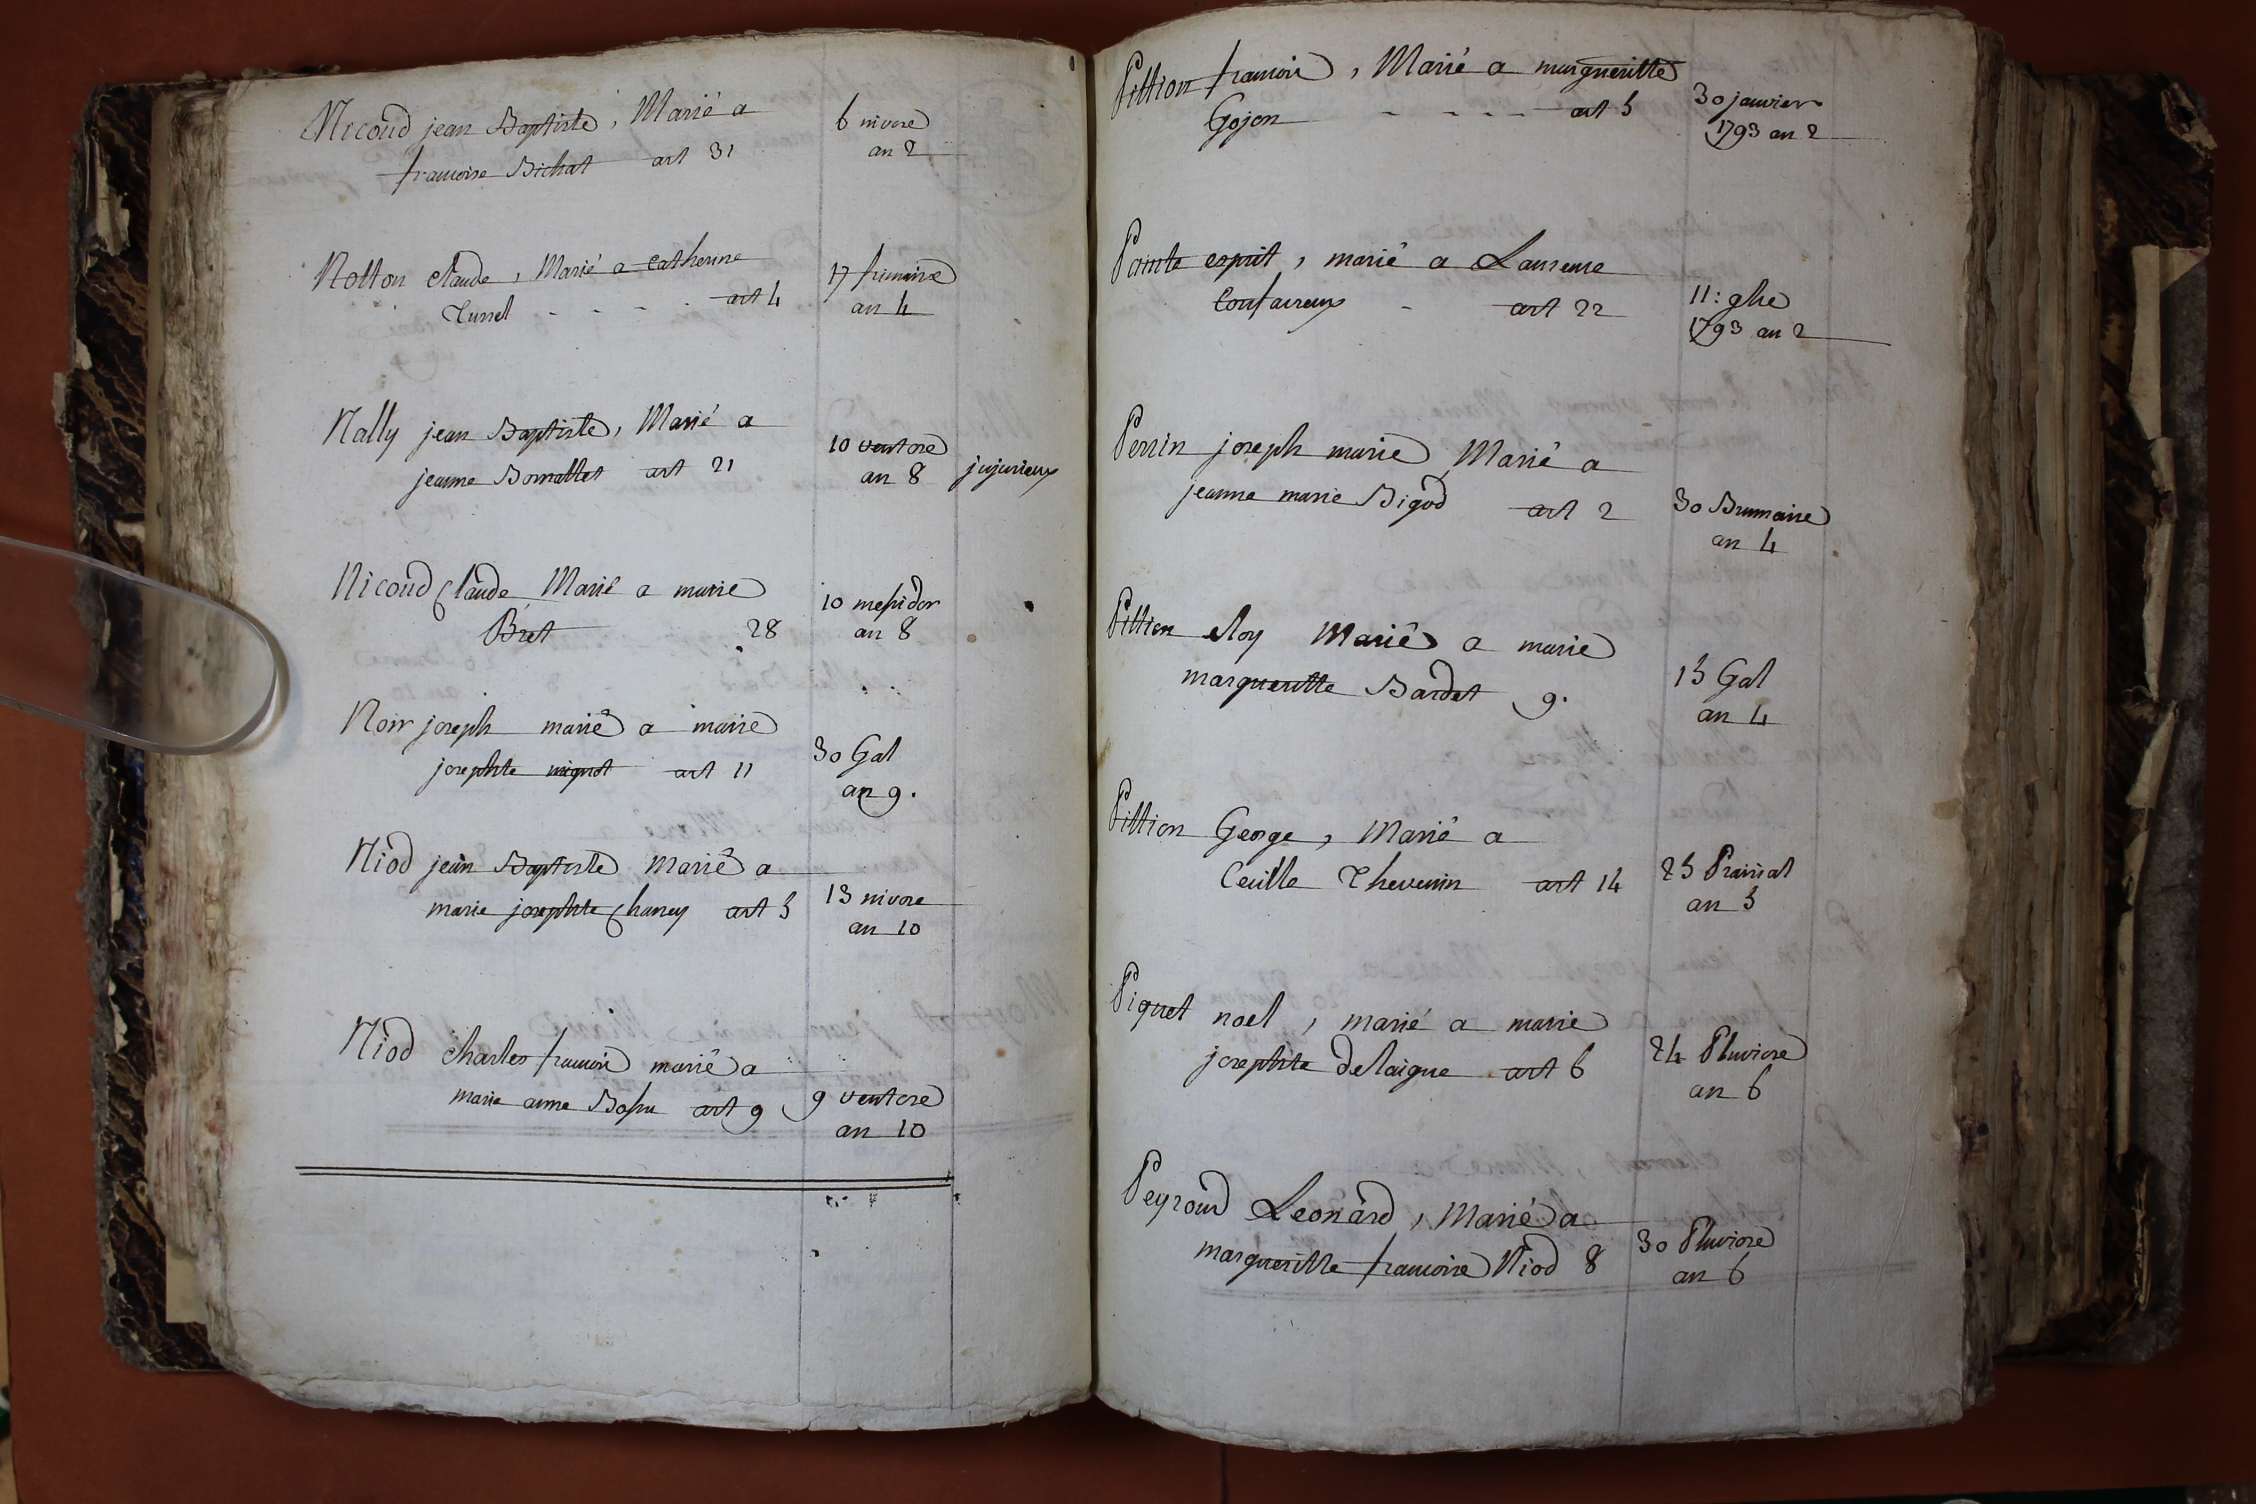 Nicoud jean Baptiste, Marié a
francoise Bichat art 31
6 nivose
an 2
Notton claude, Marié a catherine
Turrel - - - art 4
17 frimaire
an 4
Nally jean Baptiste, Marié a
jeanne Bornattet art 21
10 ventose
an 8 jujurieux
Nicoud Claude Marié a marie
Bret 28
10 messidor
an 8
Noir joseph marié a marie
josephte mignot art 11
30 Gal
an 9.
Niod jean Baptiste Marié a
marie josephte Chaney art 5
13 nivose
an 10
Niod charles francois marié a
marie anne Bossu art 9
9 ventose
an 10
Pittion francois, Marié a margueritte
Gojon - - - - art 5
30 janvier
1793 an 2
Pointe esprit, marié a Laurence
art 22
11: 9bre
1793 an 2
Perrin joseph marie Marié a
jeanne marie Bigod art 2
30 Brumaire
an 4
Pittion eloy Marié a marie
margueritte Bardet 9.
15 Gal
an 4
Pittion George, Marié a
Cecille Thevenin art 14
25 Prairial
an 5
Piquet noel, marié a marie
josephte delaigue art 6
24 Pluviose
an 6
Peyroud Leonard, Marié a
margueritte francoise Niod 8
30 Pluviose
an 6